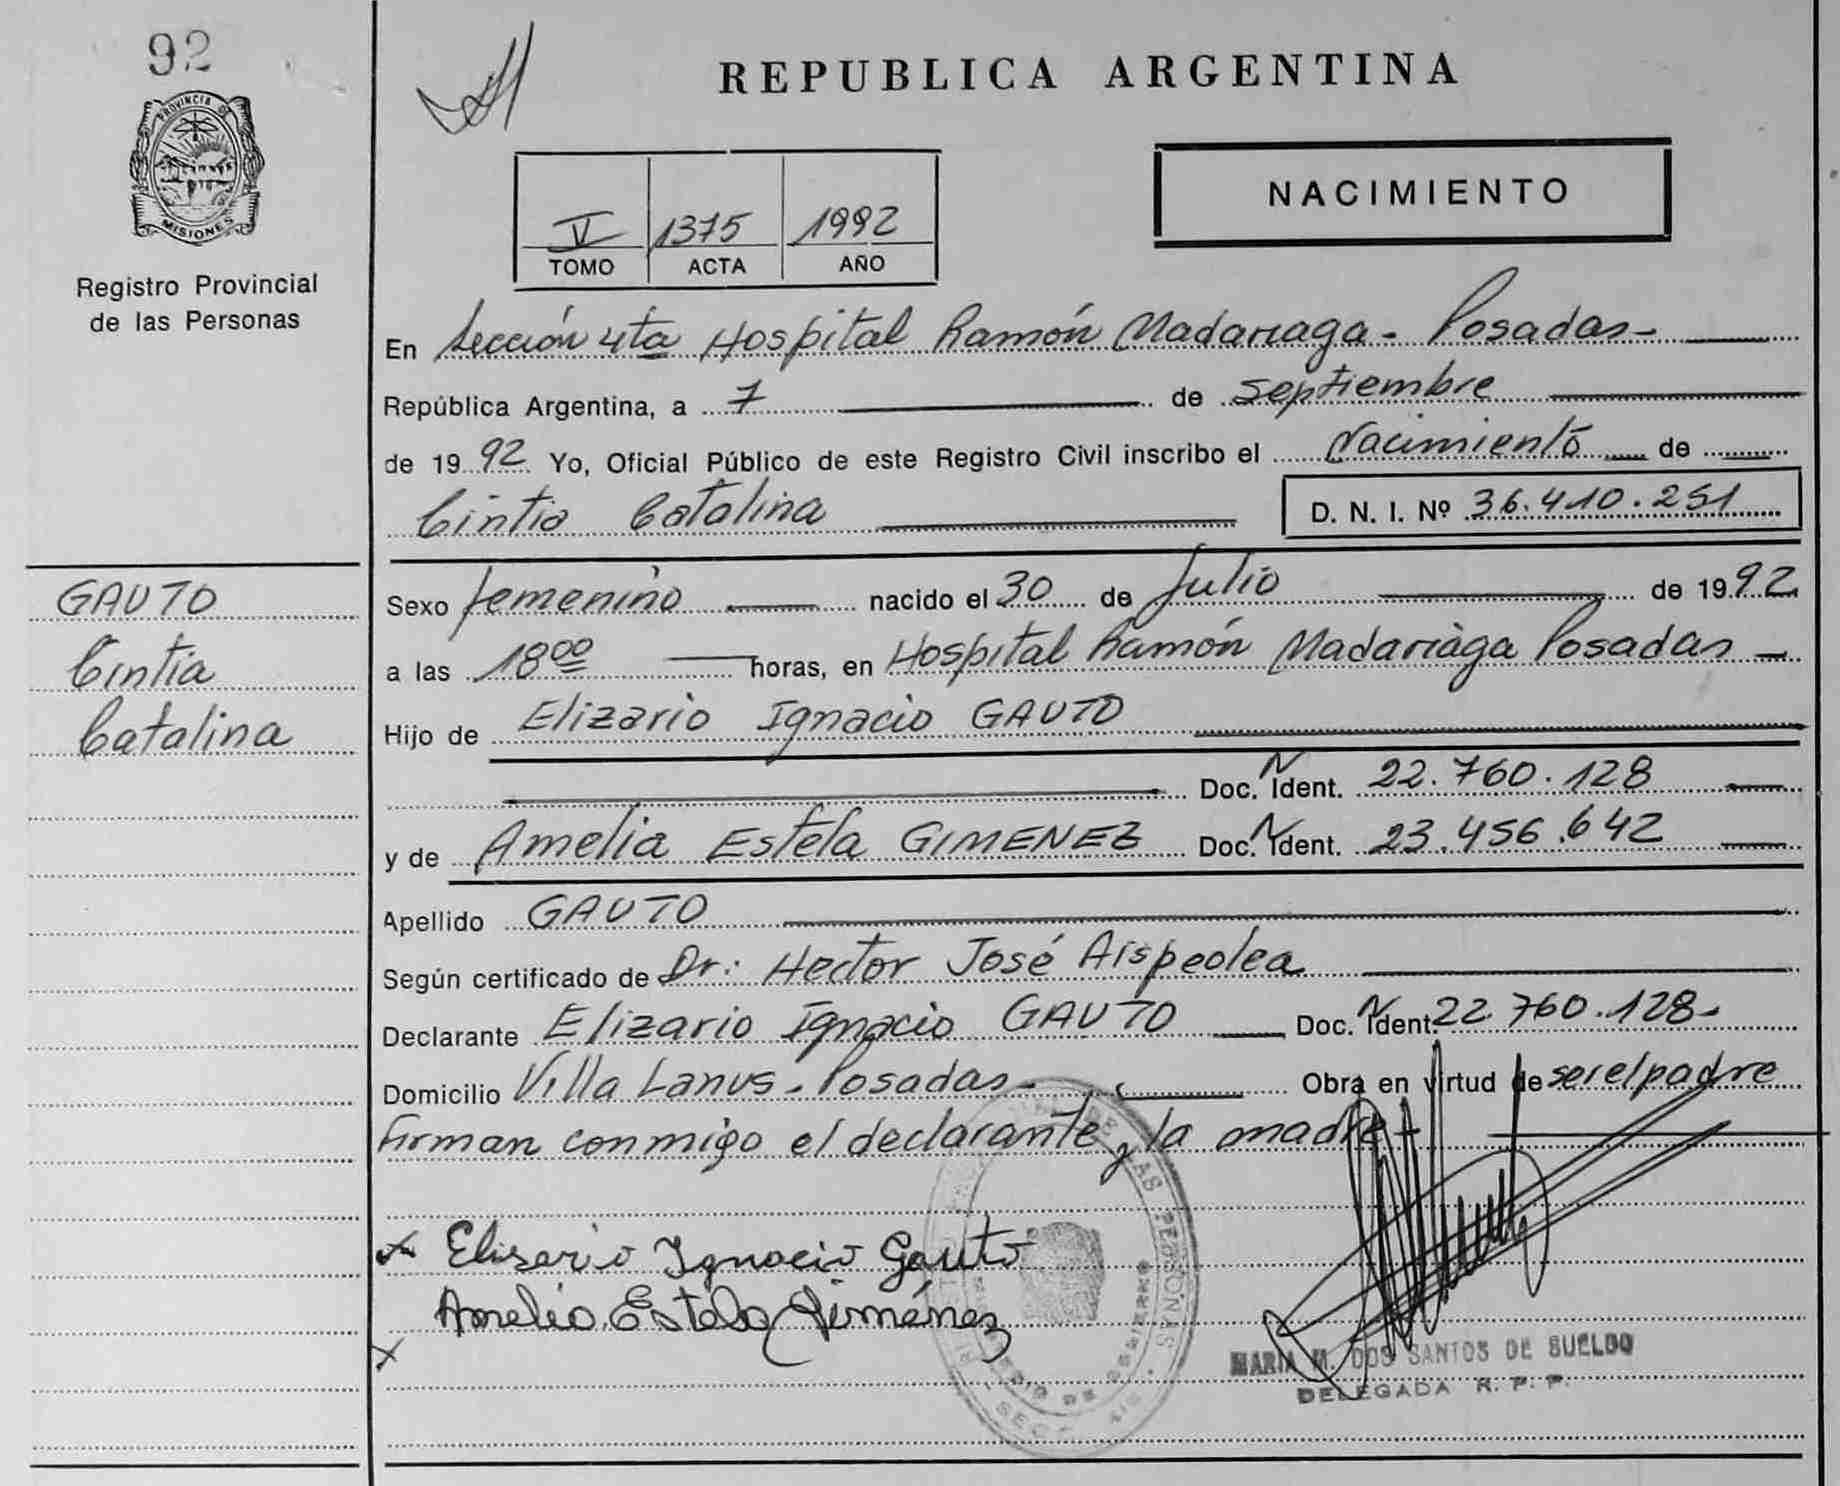 92
PROVINCIA DE
MISIONES
Registro Provincial
de las Personas
GAUTO
Cintia
Catalina
REPUBLICA ARGENTINA
V 1375 1992
TOMO ACTA AÑO
NACIMIENTO
En Sección 4ta Hospital Ramón Madariaga - Posadas -
República Argentina, a 7 de septiembre
de 1992 Yo, Oficial Público de este Registro Civil inscribo el Nacimiento de
Cintia Catalina D. N. I. Nº 36.410.251
Sexo femenino nacido el 30 de Julio de 1992
a las 18 00 horas, en Hospital Ramón Madariaga Posadas -
Hijo de Elizario Ignacio GAUTO
Doc. Ident. 22.760.128
y de Amelia Estela GIMENEZ Doc. Ident. 23.456.642
Apellido GAUTO
Según certificado de Dr: Hector José Aispeolea
Declarante Elizario Ignacio GAUTO Doc. Ident. 22.760.128-
Domicilio Villa Lanus - Posadas - Obra en virtud de ser el padre
firman conmigo el declarante y la madre
x Elisario Ignacio Gauto
Amelia Estela Jiménez
x
MARIA M. DOS SANTOS DE SUELDO
DELEGADA R. P. P.